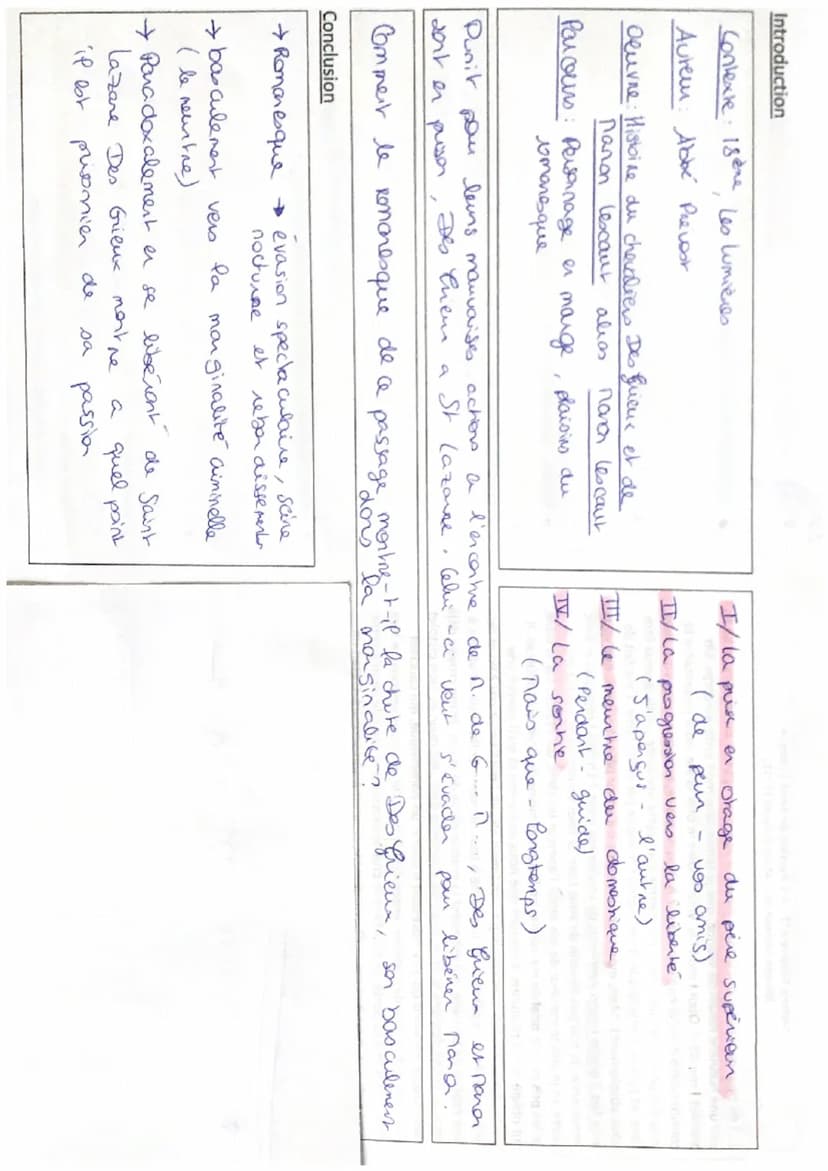 Introduction
Contexte : 18ème, Les Lumières
Auteur : Abbé Prevost
Oeuvre : Histoire du chevaliers Des Grieux et de
Manon Lescaut alias Manon Lescaut
Parcours : Personnage en marge, plaisirs du
romanesque
I/ La prise en otage du père supérieur
(de peur - vos amis)
II/ La progression vers la liberté
(J'aperçus - l'autre)
III/ Le meurtre du domestique
(Pendant - guide)
IV/ La sortie
(Mais que - longtemps)
Punit pour leurs mauvaises actions a l'encontre de M. de G... M..., Des Grieux et Manon
sont en prison, Des Grieux a St Lazare. Celui-ci veut s'évader pour libérer Manon.
Comment le romanesque de ce passage montre-t-il la chute de Des Grieux, son basculement
dans la marginalité ?
Conclusion
→ Romanesque → évasion spectaculaire, scène
nocturne et rebondissements
→ basculement vers la marginalité criminelle
(le meurtre)
→ Paradoxalement en se libérant de Saint
Lazare Des Grieux montre a quel point
il est prisonnier de sa passion